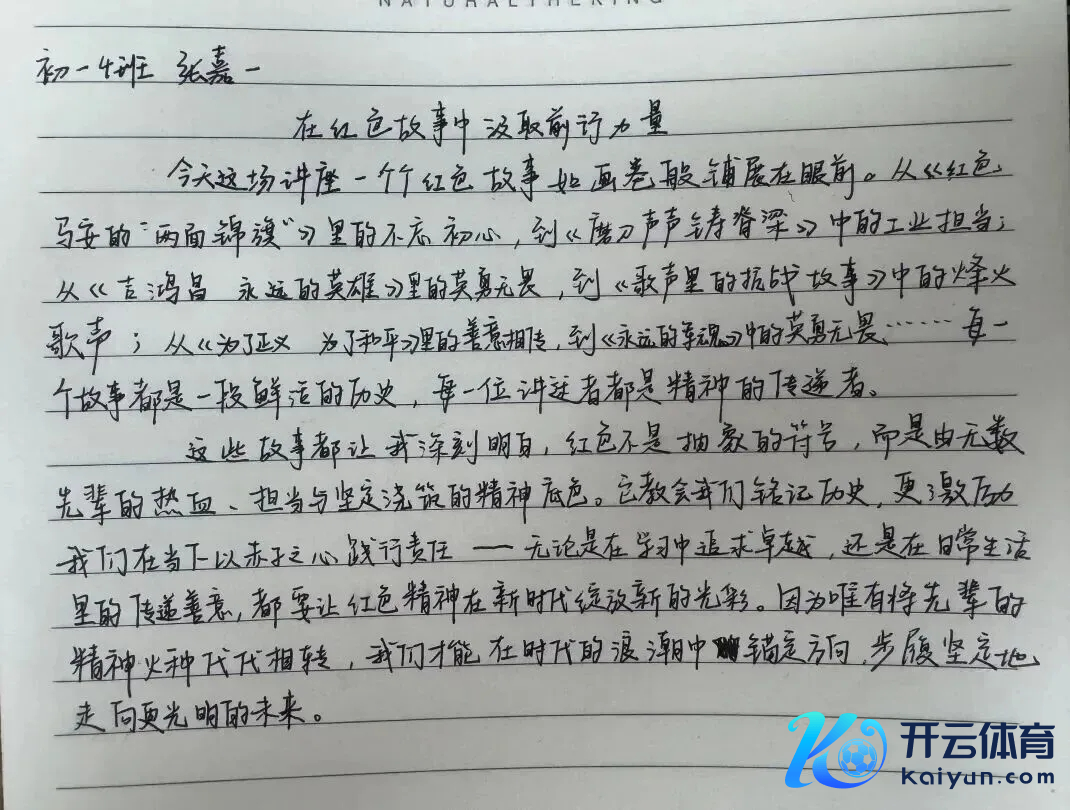 NATURALTHEKING
初一4班 张嘉一
在红色故事中汲取前行力量
今天这场讲座一个个红色故事如画卷般铺展在眼前。从《红色
马妥的“两面锦旗”》里的不忘初心，到《磨刀声声铸脊梁》中的工业担当；
从《吉鸿昌 永远的英雄》里的英勇无畏，到《歌声里的抗战故事》中的烽火
歌声；从《为了正义 为了和平》里的善意相传，到《永远的军魂》中的英勇无畏……每一
个故事都是一段鲜活的历史，每一位讲述者都是精神的传递者。
这些故事都让我深刻明白，红色不是抽象的符号，而是由无数
先辈的热血、担当与坚定浇筑的精神底色。它教会我们铭记历史，更激励
我们在当下以赤子之心践行责任——无论是在学习中追求卓越，还是在日常生活
里的传递善意，都要让红色精神在新时代绽放新的光彩。因为唯有将先辈的
精神火种代代相转，我们才能在时代的浪潮中锚定方向，步履坚定地
走向更光明的未来。
开云体育
kaiyun.com